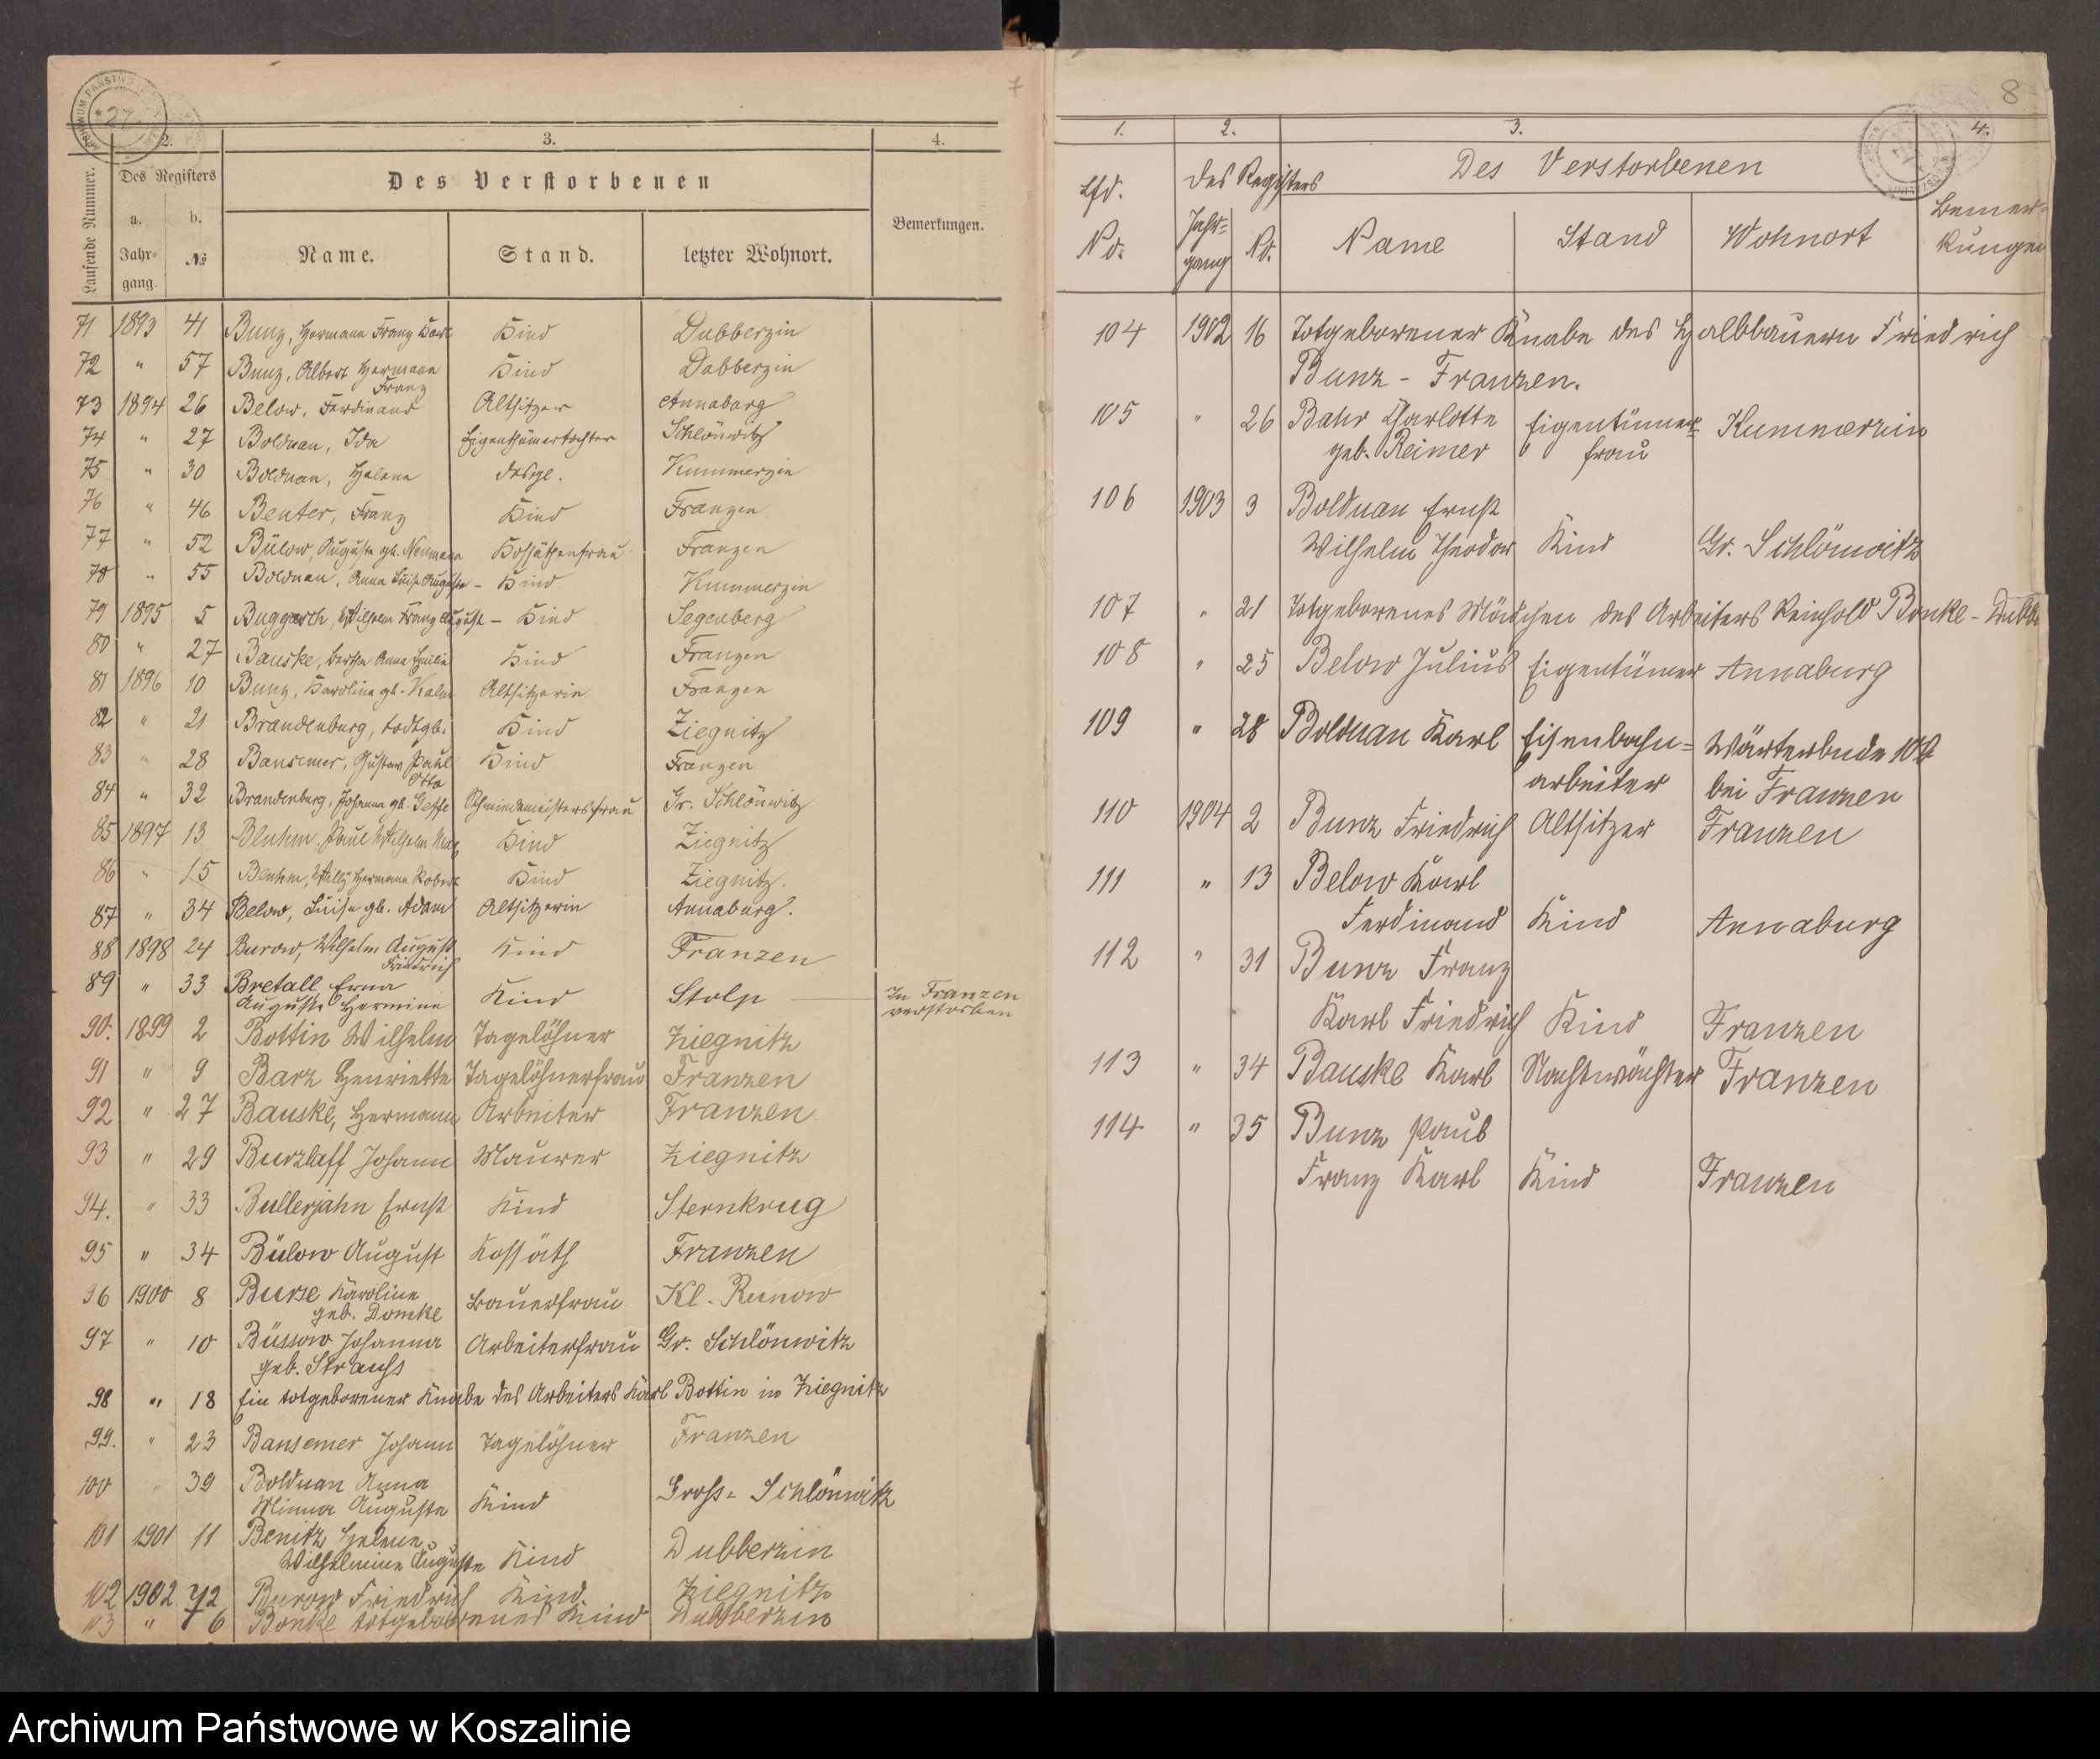 7
27
2. 3. 4.
Laufende Nummer. Des Registers Des Verstorbenen Bemerkungen.
a. b.
Jahr- № Name. Stand. letzter Wohnort.
gang.
71 1893 41 Bunz, Hermann Franz Karl Kind Dubberzin
72 " 57 Bunz, Albert Hermann Kind Dubberzin
Franz
73 1894 26 Below, Ferdinand Altsitzer Annaburg
74 " 27 Bolduan, Ida Eigenthümertochter Schlönwitz
75 " 30 Bolduan, Helene desgl. Kummerzin
76 " 46 Benter, Franz Kind Franzen
77 " 52 Bülow, Auguste gb. Neumann Kossäthenfrau Franzen
78 " 55 Bolduan, Anna Luise Auguste - Kind Kummerzin
79 1895 5 Buggersch, Wilhelm Franz August - Kind Segenberg
80 " 27 Bauske, Bertha Anna Emilie Kind Franzen
81 1896 10 Bunz, Karoline gb. Altsitzerin Franzen
82 " 21 Brandenburg, todtgb. Kind Ziegnitz
83 " 28 Bansemer, Gustav Paul Kind Franzen
Otto
84 " 32 Brandenburg, Johanna gb. Schmiedemeistersfrau Gr. Schlönwitz
85 1897 13 Bluhm, Paul Wilhelm Max Kind Ziegnitz
86 " 15 Bluhm, Willy Hermann Robert Kind Ziegnitz.
87 " 34 Below, Luise gb. Adam Altsitzerin Annaburg.
88 1898 24 Burow, Wilhelm August Kind Franzen
Friedrich
89 " 33 Bretall Erna Kind Stolp In Franzen
Auguste Hermine verstorben
90. 1899 2 Bottin Wilhelm Tagelöhner Ziegnitz
91 " 9 Barz Henriette Tagelöhnerfrau Franzen
92 " 27 Bauske, Hermann Arbeiter Franzen
93 " 29 Burzlaff Johann Maurer Ziegnitz
94. " 33 Bullerjahn Ernst Kind Sternkrug
95 " 34 Bülow August Kossäth Franzen
96 1900 8 Karoline Bauerfrau Kl. Runow
geb. Domke
97 " 10 Büssow Johanna Arbeiterfrau Gr. Schlönwitz
geb. Strauss
98 " 18 Ein totgeborener Knabe des Arbeiters Karl Bottin in Ziegnitz
99. " 23 Bansemer Johann Tagelöhner Franzen
100 " 39 Bolduan Anna
Minna Auguste Kind Gross-Schlönwitz
101 1901 11 Benitz Helene
Wilhelmine Auguste Kind Dubberzin
102 1902 Burow Friedrich Kind Ziegnitz
103 " 6 Bonke totgeborenes Kind Dubberzin
8
1. 2. 3. 4.
Lfd. Des Registers Des Verstorbenen Bemer-
No. Jahr- No. Name Stand Wohnort kungen
gang
104 1902 16 Totgeborener Knabe des Halbbauern Friedrich
Bunz - Franzen.
105 " 26 Bahr Charlotte Eigentümer- Kummerzin
geb. Reimer frau
106 1903 3 Bolduan Ernst
Wilhelm Theodor Kind Gr. Schlönwitz
107 " 21 Totgeborenes Mädchen des Arbeiters Reinhold Bonke - Dubb
108 " 25 Below Julius Eigentümer Annaburg
109 " 28 Bolduan Karl Eisenbahn- Wärterbude
arbeiter bei Franzen
110 1904 2 Bunz Friedrich Altsitzer Franzen
111 " 13 Below Karl
Ferdinand Kind Annaburg
112 " 31 Bunz Franz
Karl Friedrich Kind Franzen
113 " 34 Bauske Karl Nachtwächter Franzen
114 " 35 Bunz Paul
Franz Karl Kind Franzen
Archiwum Państwowe w Koszalinie